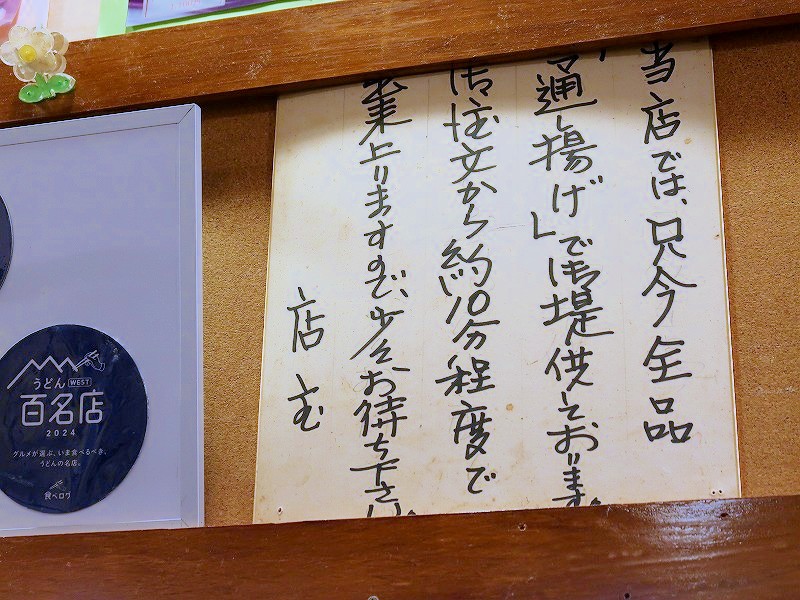 当店では、只今全品
「通し揚げ」で御提供しております
御注文から約10分程度で
出来上りますので、少々お待ち下さい
店主
うどん WEST
百名店
2024
グルメが選ぶ、いま食べるべき、
うどんの名店。
食べログ